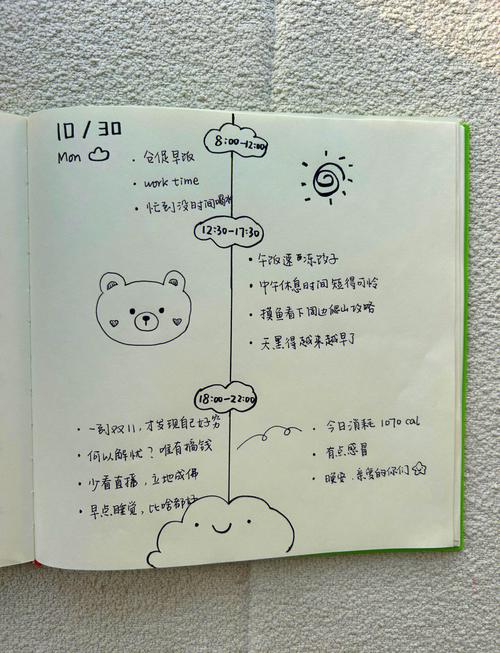 10/30
Mon
8:00-12:00
· 仓促早饭
· work time
· 忙到没时间喝水
12:30-17:30
· 午饭速冻饺子
· 中午休息时间短得可怜
· 摸鱼看下周边爬山攻略
· 天黑得越来越早了
18:00-22:00
· 一到双11,才发现自己好穷
· 何以解忧?唯有搞钱
· 少看直播,立地成佛
· 早点睡觉,比啥都好
· 今日消耗 1070 cal
· 有点感冒
· 晚安,亲爱的你们